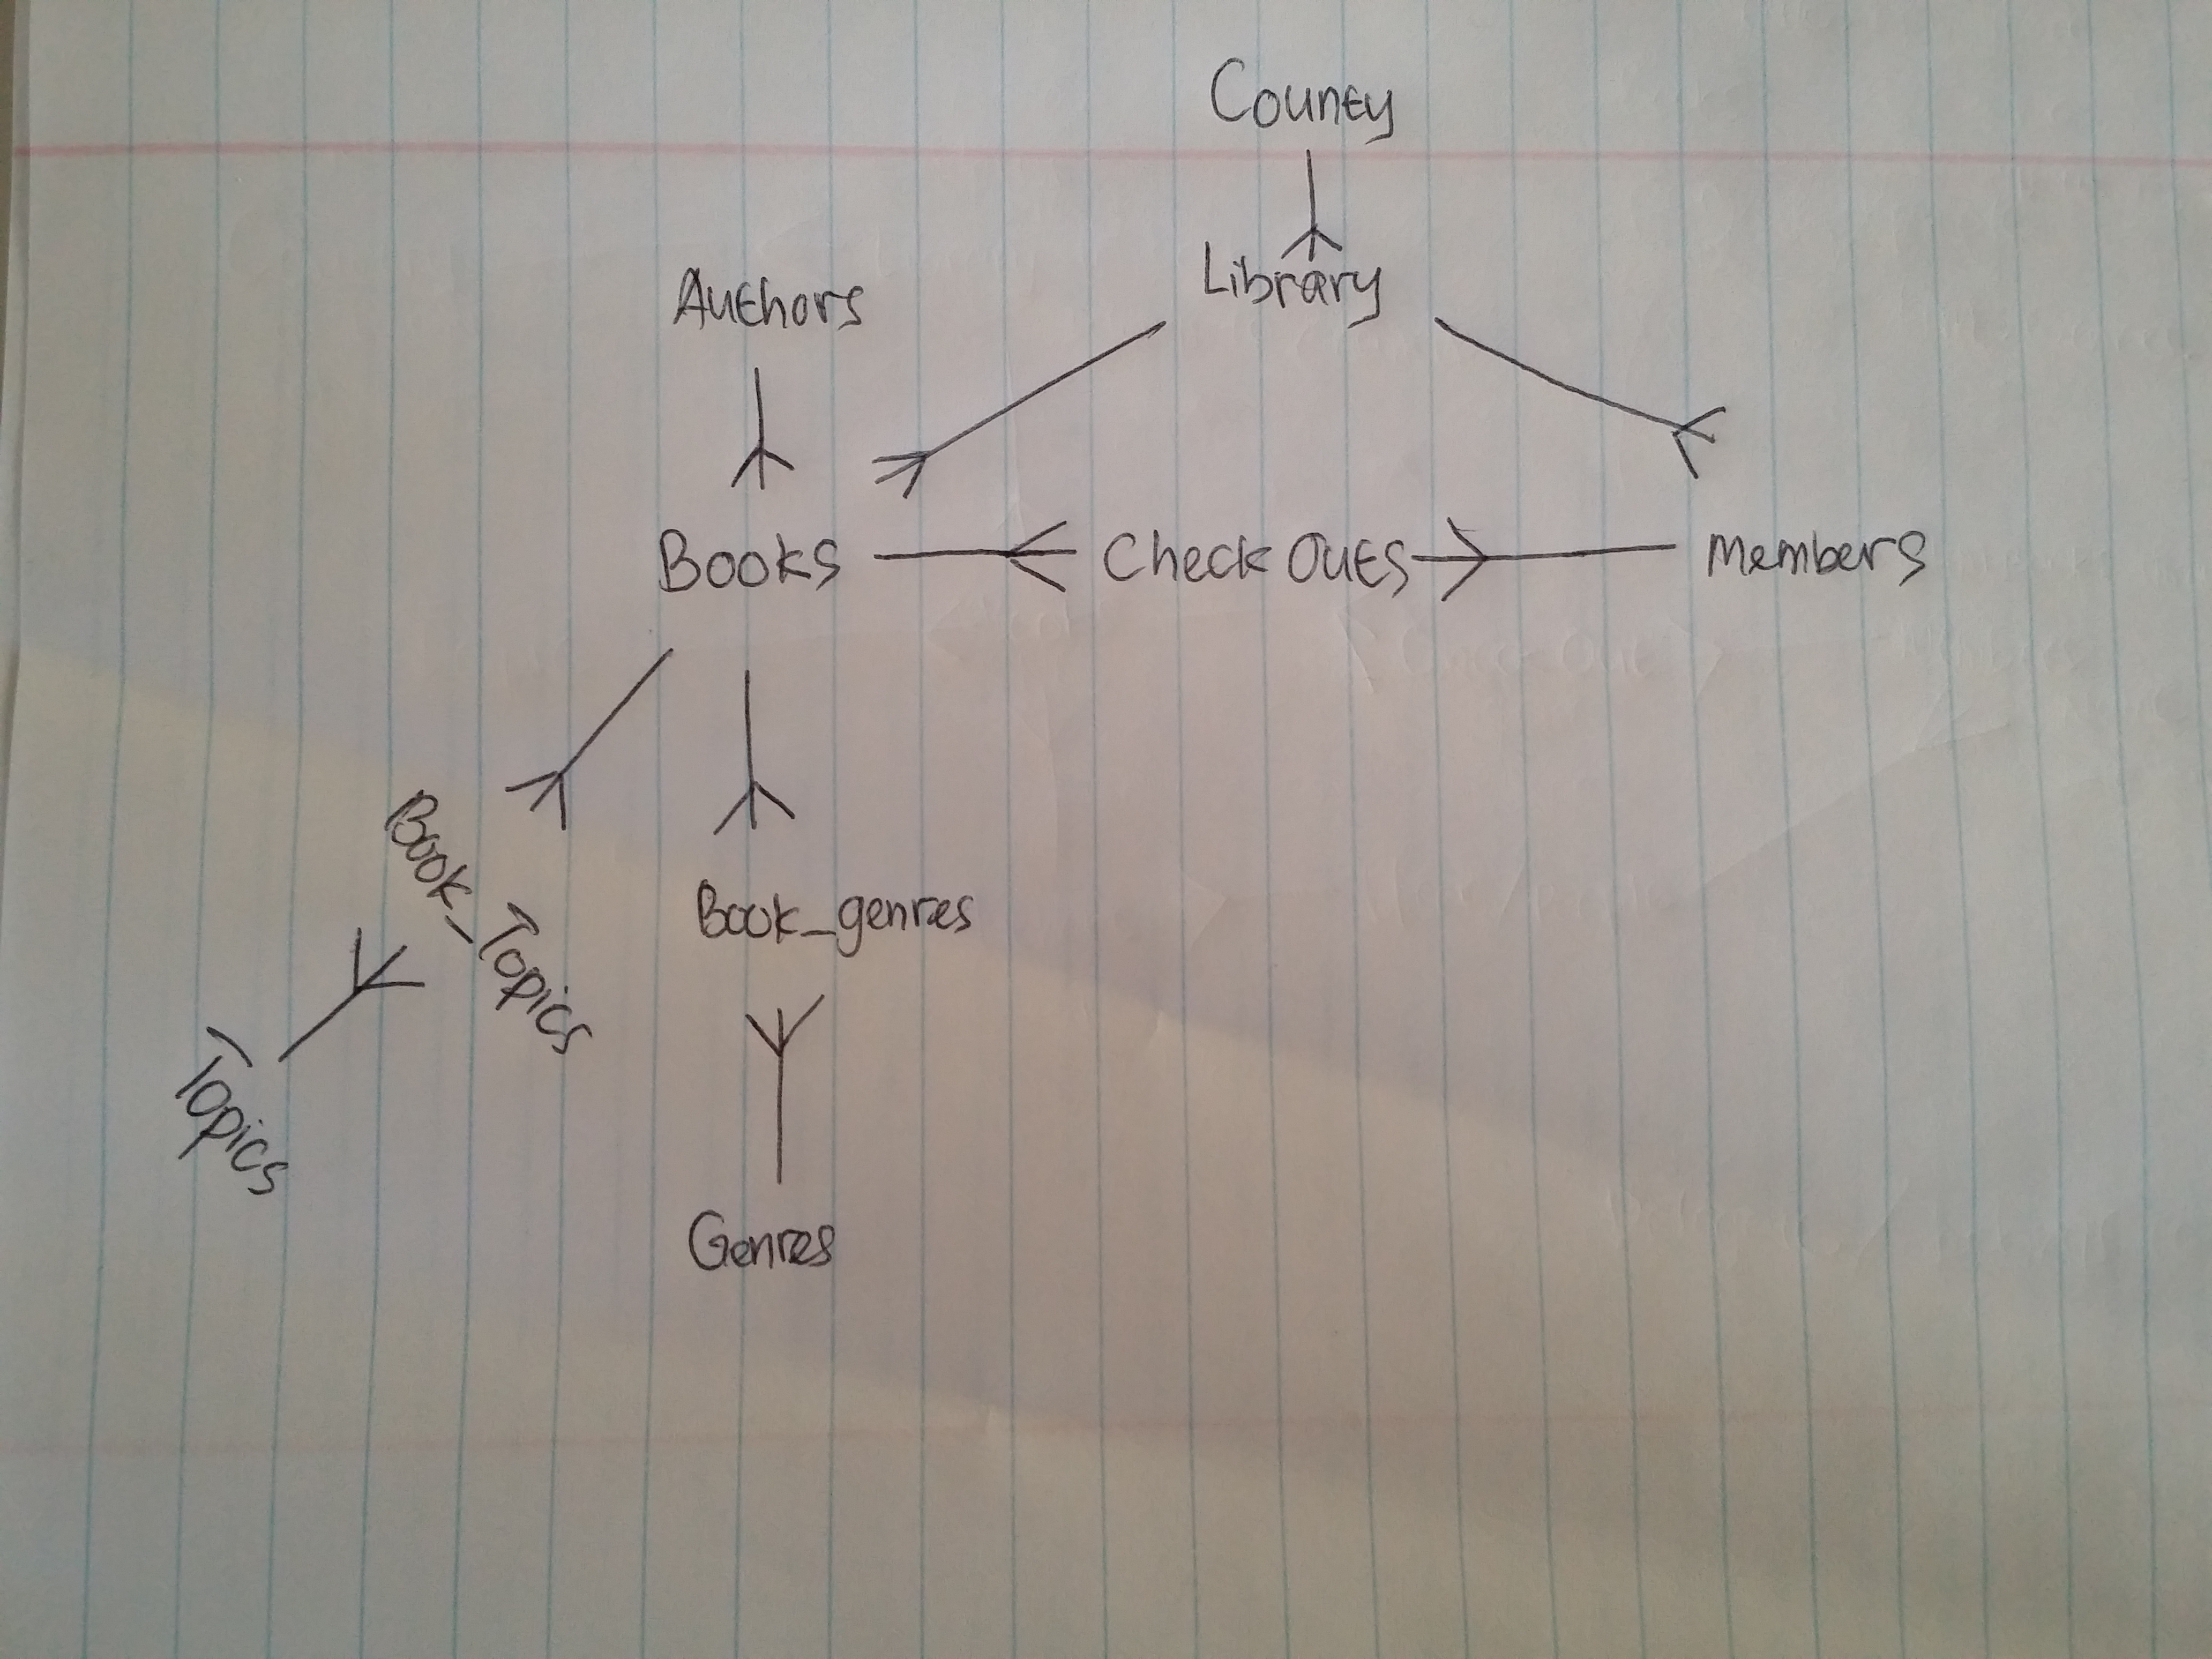 County
Library
Authors
Books
Check Outs
Members
Book_Topics
Book_genres
Topics
Genres